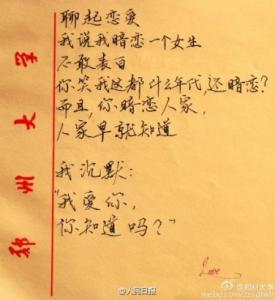 聊起恋爱
我说我暗恋一个女生
不敢表白
你笑我这都什么年代,还暗恋?
而且,你暗恋人家,
人家早就知道
我沉默:
"我爱你,
你知道吗?"
郑州大学
Love
@人民日报
@郑州大学